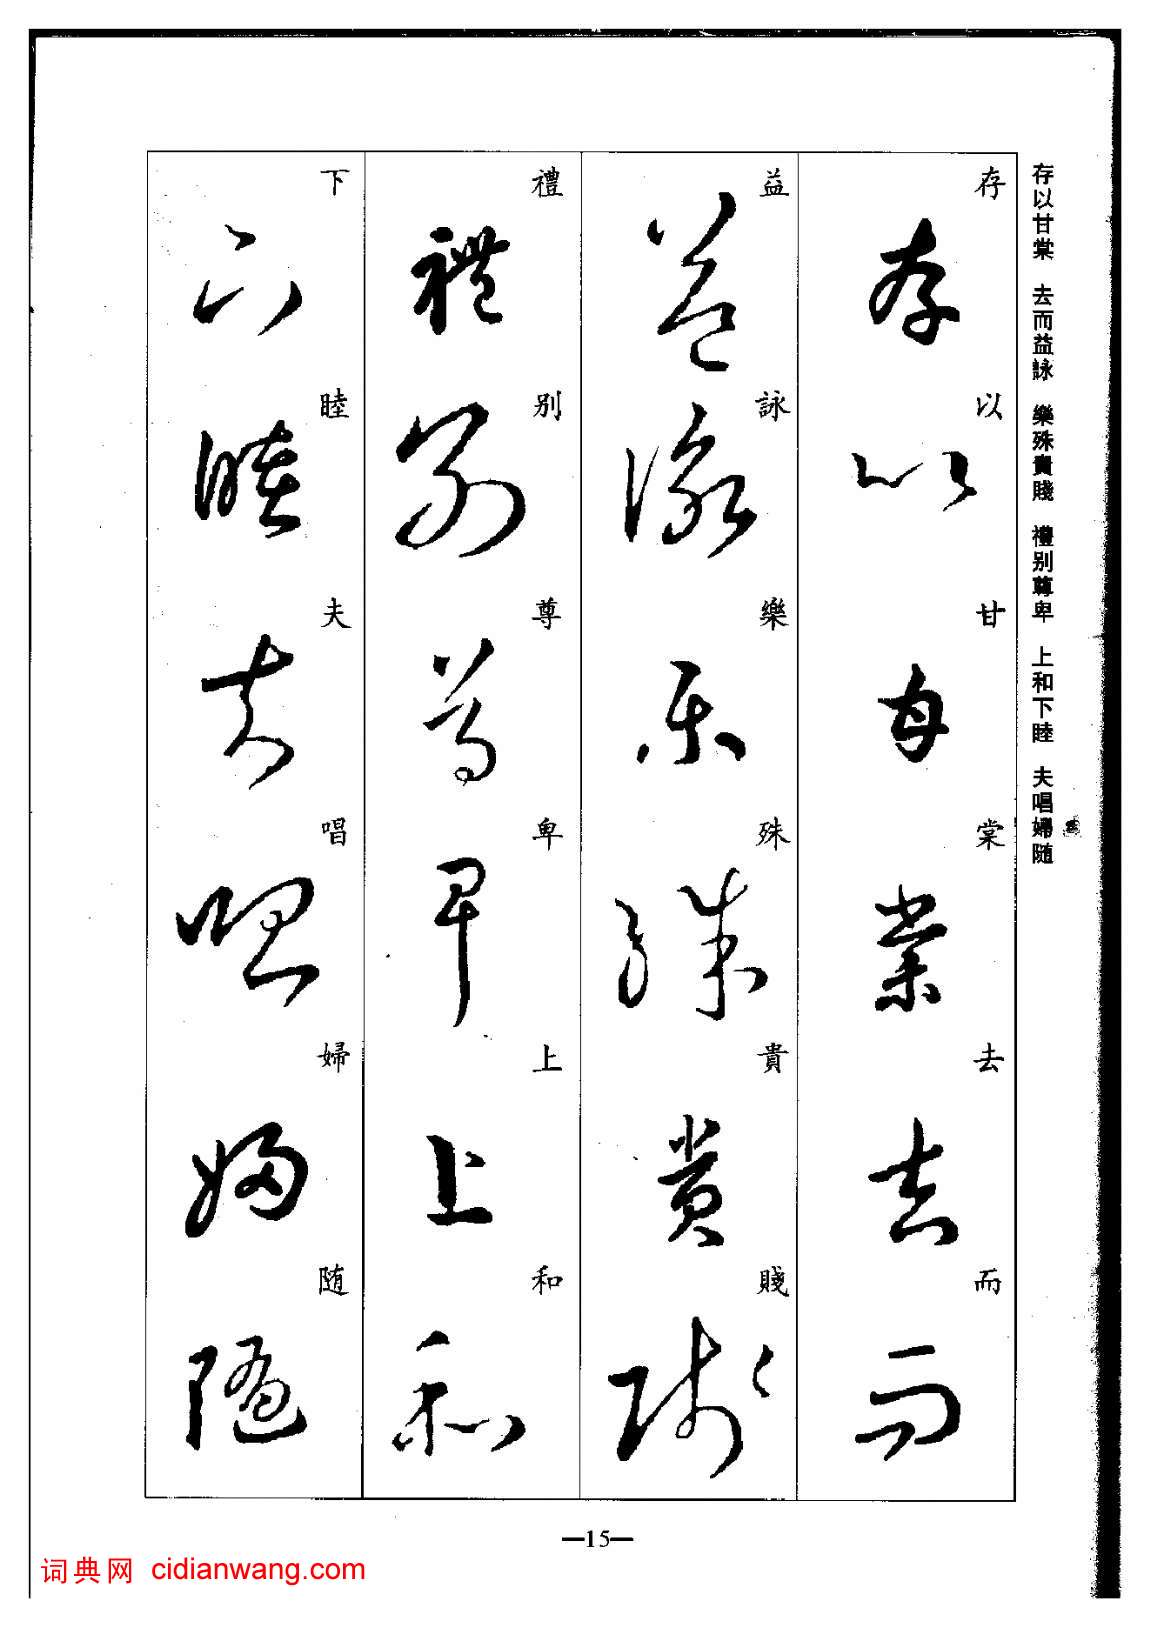 存以甘棠 去而益詠 樂殊貴賤 禮别尊卑 上和下睦 夫唱婦随
存以甘棠去而
益詠樂殊貴賤
禮别尊卑上和
下睦夫唱婦随
—15—
词典网 cidianwang.com